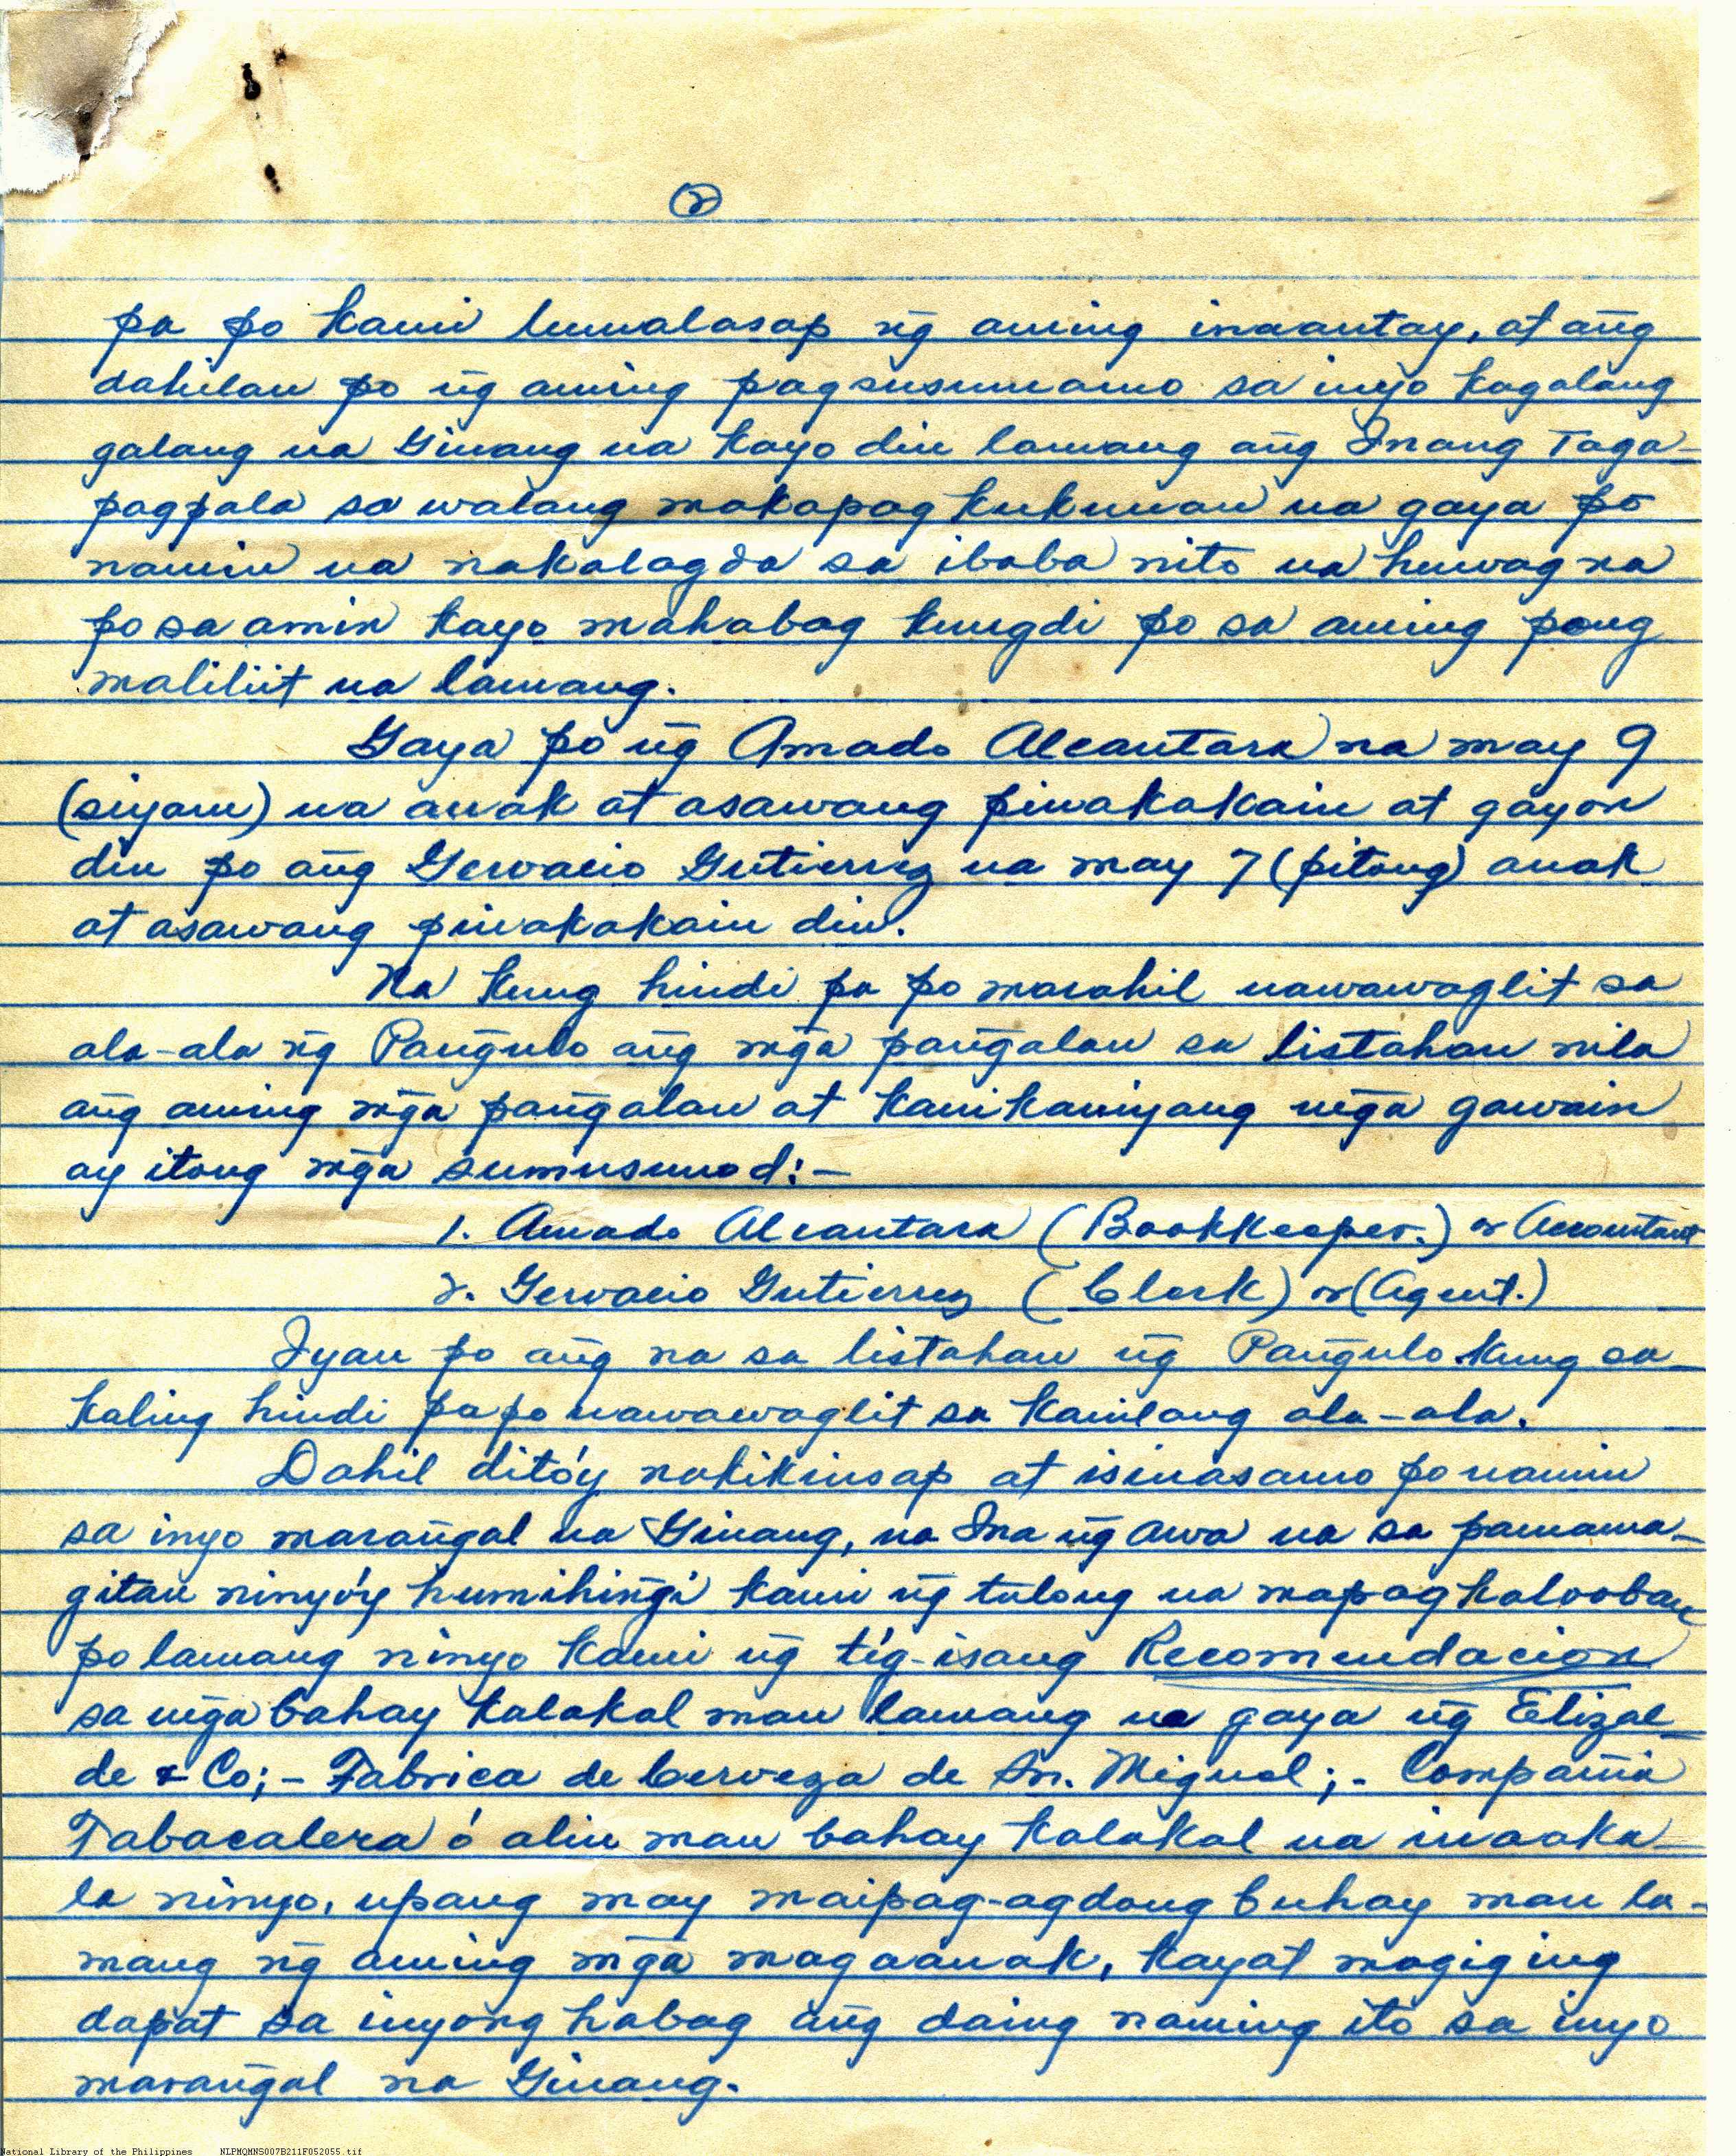 2
pa po kami lumalasap ng̃ aming inaantay, at ang̃
dahilan po ng̃ aming pagsusumamo sa inyo kagalang
galang na Ginang na kayo din lamang ang̃ Inang Taga-
pagpala sa walang makapag kukunan na gaya po
namin na nakalagda sa ibaba nito na huwag na
po sa amin kayo mahabag kungdi po sa aming pong
maliliit na lamang.
Gaya po ng̃ Amado Alcantara na may 9
(siyam) na anak at asawang pinakakain at gayon
din po ang̃ Gervacio Gutierrez na may 7 (pitong) anak
at asawang pinakakain din.
Na kung hindi pa po marahil nawawaglit sa
ala-ala ng̃ Pang̃ulo ang̃ mg̃a pang̃alan sa listahan nila
ang̃ aming mg̃a pang̃alan at kanikaniyang mg̃a gawain
ay itong mg̃a sumusunod:-
1. Amado Alcantara (Bookkeeper.) or Accountant
2. Gervacio Gutierrez (Clerk) or (Agent.)
Iyan po ang̃ na sa listahan ng̃ Pang̃ulo kung sa-
kaling hindi pa po nawawaglit sa kanilang ala-ala.
Dahil ditó'y nakikiusap at isinasamo po namin
sa inyo marang̃al na Ginang, na Ina ng̃ awa na sa pamama-
gitan ninyó'y humihing̃i kami ng̃ tulong na mapagkalooban
po lamang ninyo kami ng̃ tig-isang Recomendacion
sa mg̃a bahay kalakal man lamang na gaya ng̃ Elizal-
de & Co; - Fabrica de Cerveza de Sn. Miguel; - Compañia
Tabacalera ó alin man bahay kalakal na inaaka-
la ninyo, upang may maipag-agdong buhay man la-
mang ng̃ aming mg̃a magaanak, kayat magiging
dapat sa inyong habag ang̃ daing naming ito sa inyo
marang̃al na Ginang.
National Library of the Philippines NLPMQMNS007B211F052055.tif